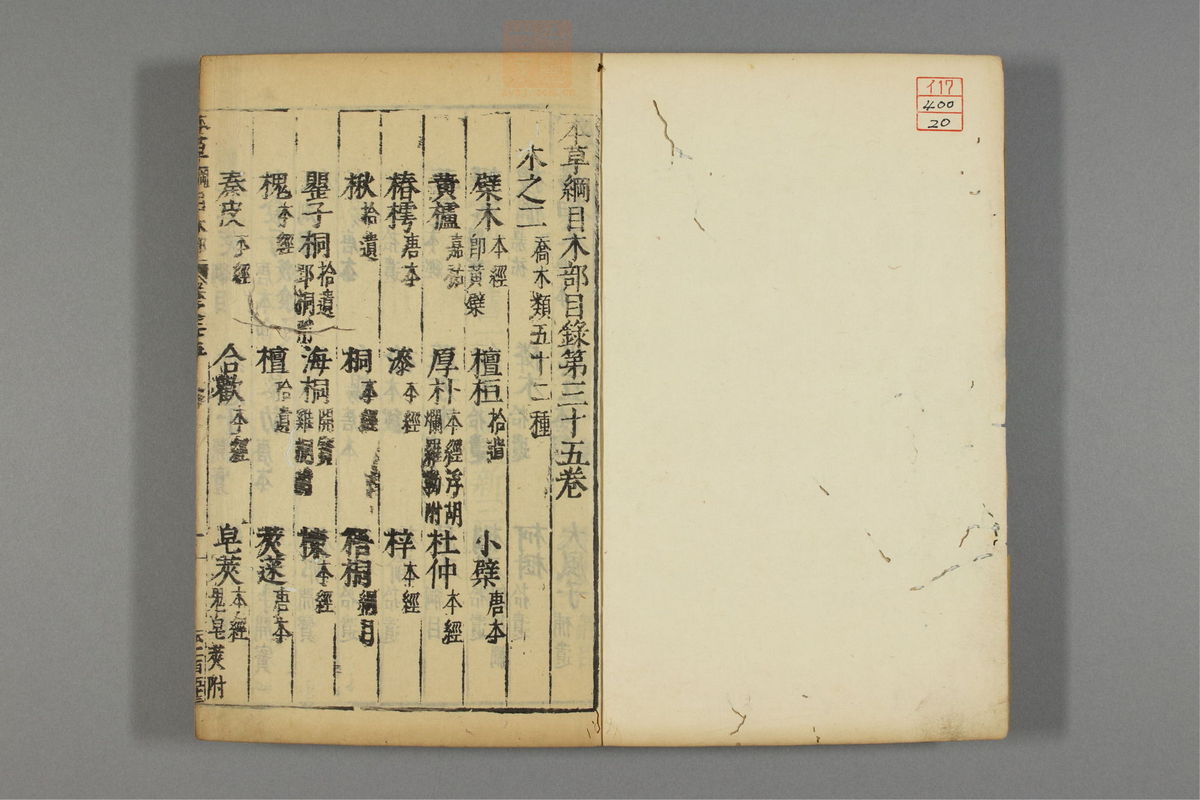 イ17
400
20
本草綱目木部目錄第三十五卷
木之二 喬木類五十二種
檗木 本經 卽黃檗 檀桓 拾遺 小檗 唐本
黃櫨 嘉祐 厚朴 本經 浮爛羅勒附 杜仲 本經
椿樗 唐本 漆 本經 梓 本經
楸 拾遺 桐 本經 梧桐 綱目
罌子桐 拾遺 海桐 開寶 楝 本經
槐 本經 檀 拾遺 莢蒾 唐本
秦皮 本經 合歡 本經 皂莢 本經 鬼皂莢附